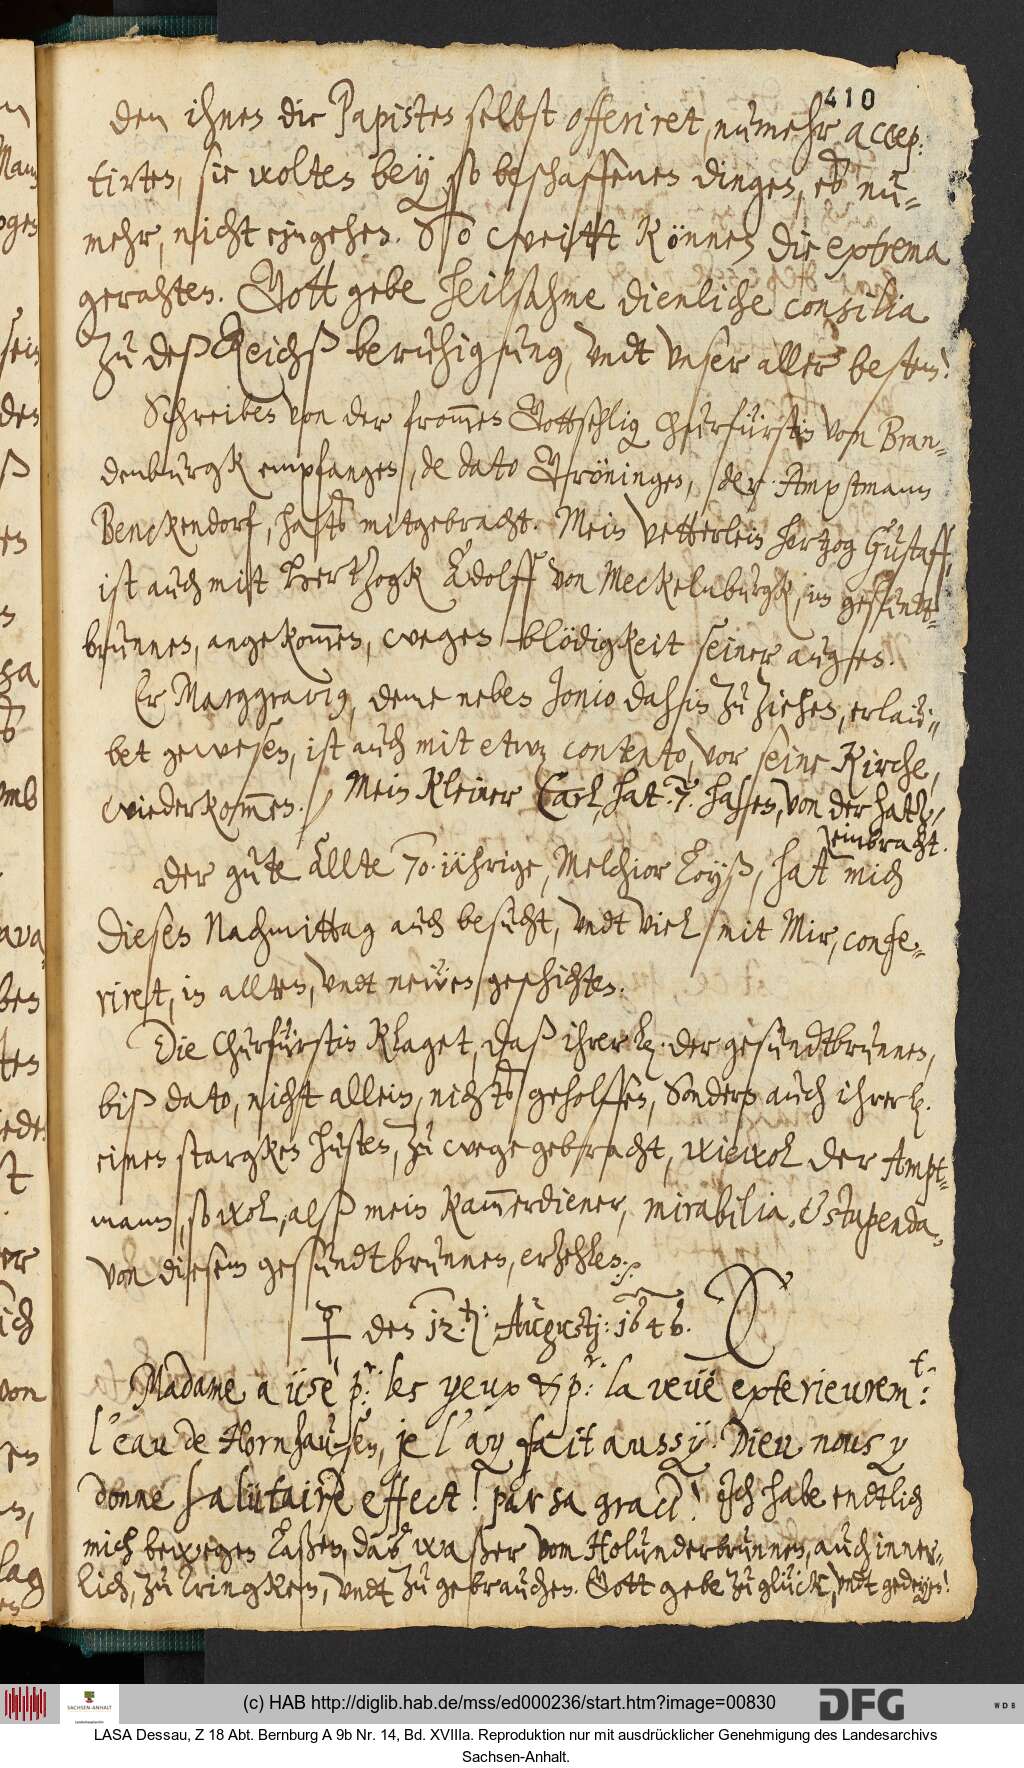 410
den ihnen die Papisten selbst offeriret, numehr accep:
tirten, sie wolten bey so beschaffenen dingen, es nu-
mehr, nicht eingehen. So weitt können die extrema
gerahten. Gott gebe heilsahme dienliche consilia
zu deß Reichß beruhigung, undt unser aller besten!
Schreiben von der frommen Gottsehlig Churfürstin von Bran-
denburgk empfangen, de dato Gröningen, der Amptmann
Benckendorf, hats mitgebracht. Mein Vetterlein Hertzog Gustaff,
ist auch mitt Hertzogk Adolff von Mecklenburgk, im gesundt-
brunnen, angekommen, wegen blödigkeit seiner augen.
Er Marggravig, deme neben Jonio dahin zu ziehen, erlau-
bet gewesen, ist auch mit etwz contento, vor seine Kirche,
wiederkommen. / Mein kleiner Carl, hat .7. hasen, von der hatz /
einbracht.
Der gute allte 70.iährige, Melchior Loyß, hat mich
diesen Nachmittag auch besucht, undt viel mit Mir, confe-
riret, in allten, undt neuen geschichten.
Die Churfürstin klaget, daß ihrer L. der gesundtbrunnen,
biß dato, nicht allein, nichts geholffen, Sondern auch ihrer L.
einen starcken husten, zu wege gebracht, wiewol der Ampt-
mann, so wol, alß mein Kammerdiener, mirabilia, & stupenda,
von diesem gesundtbrunnen, erzehlen.
♀ den 12.ten: Augustj: 1646.
Madame a üsé p.r les yeux & p.r la veüe exterieurem.t:
l'eau de Hornhausen, je l'ay fait aussy. Dieu nous y
donne salütaire effect! par sa grace! Ich habe endtlich
mich bewegen laßen, das waßer vom Holunderbrunnen, auch inner-
lich, zu trincken, undt zu gebrauchen. Gott gebe zu glück, undt gedeyen!
(c) HAB http://diglib.hab.de/mss/ed000236/start.htm?image=00830
SACHSEN-ANHALT
DFG
WDB
LASA Dessau, Z 18 Abt. Bernburg A 9b Nr. 14, Bd. XVIIIa. Reproduktion nur mit ausdrücklicher Genehmigung des Landesarchivs
Sachsen-Anhalt.